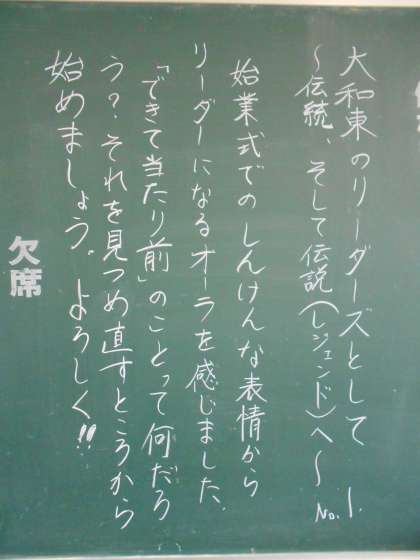 大和東のリーダーズとして
～伝統、そして伝説(レジェンド)へ～ No.1.
始業式でのしんけんな表情から
リーダーになるオーラを感じました。
「できて当たり前」のことって何だろ
う？それを見つめ直すところから
始めましょう。よろしく!!
欠席